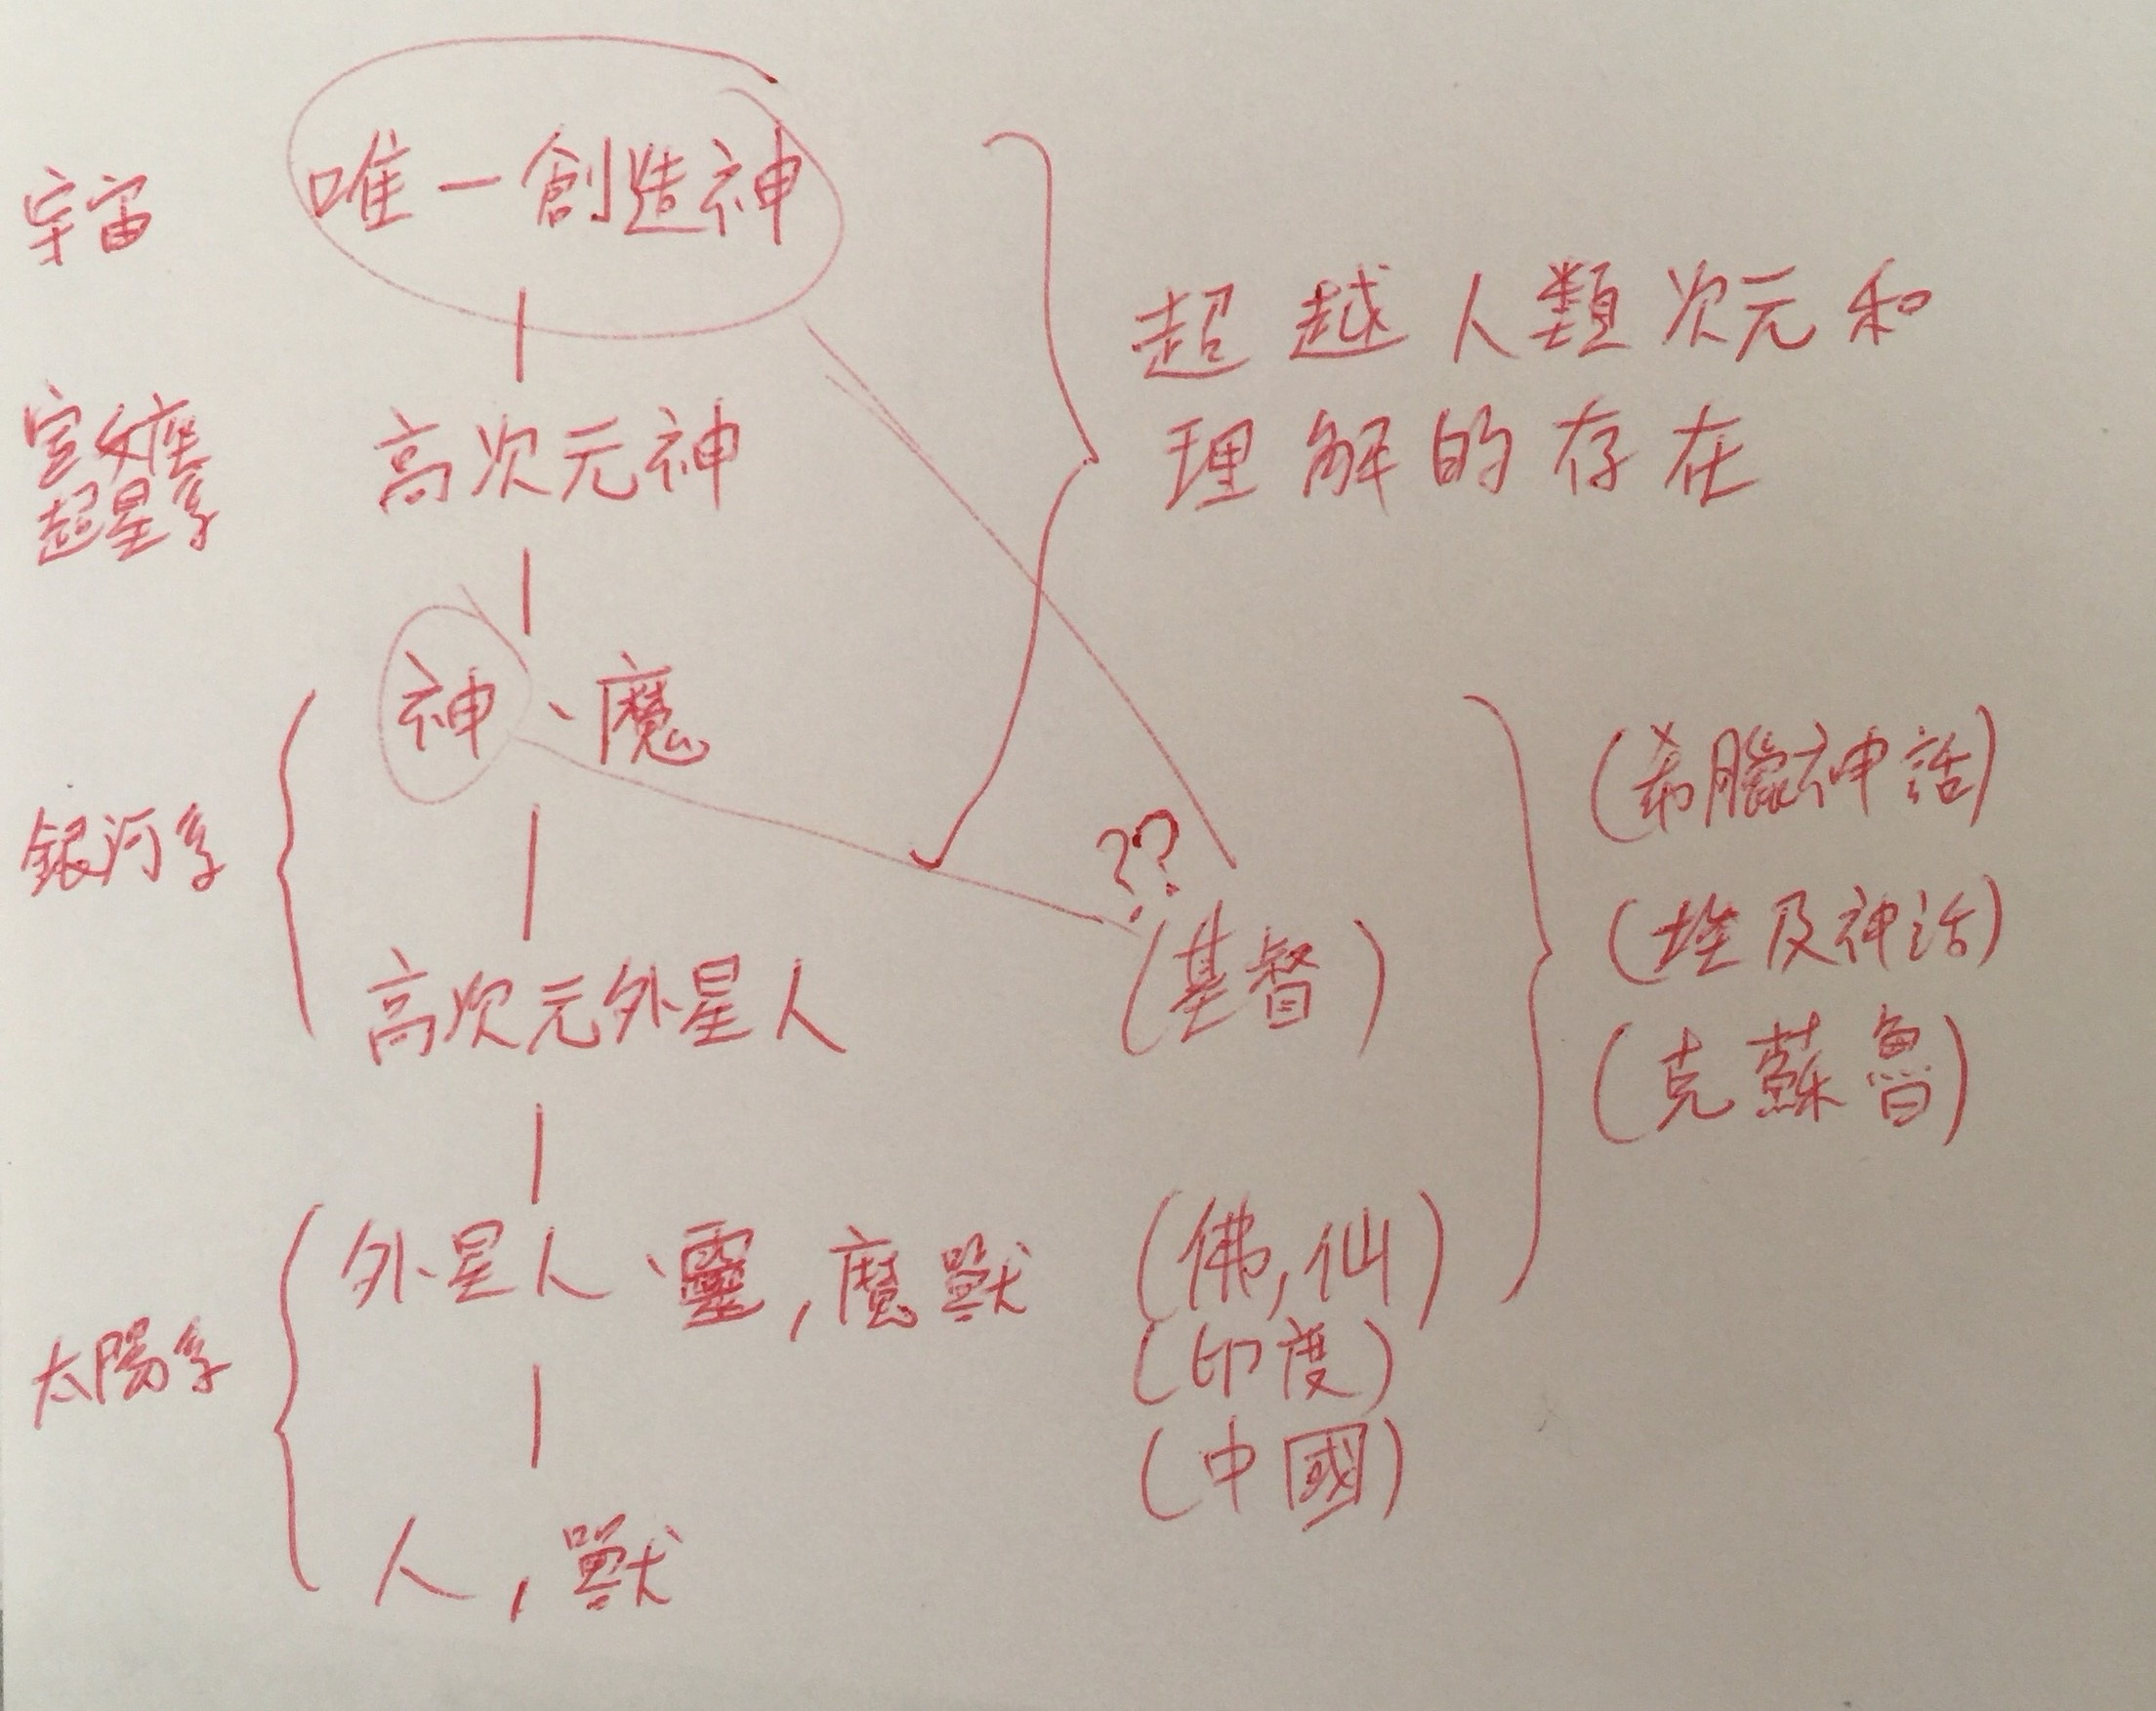 宇宙 唯一創造神
超越人類次元和
理解的存在
室女座
超星系 高次元神
神、魔
銀河系
高次元外星人
??
(基督)
(希臘神話)
(埃及神話)
(克蘇魯)
太陽系
外星人、靈,魔獸
(佛,仙)
(印度)
(中國)
人,獸